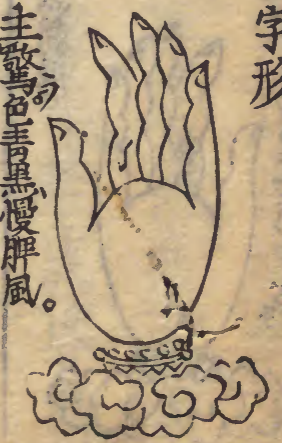 字形
主驚。色青黑慢脾風。